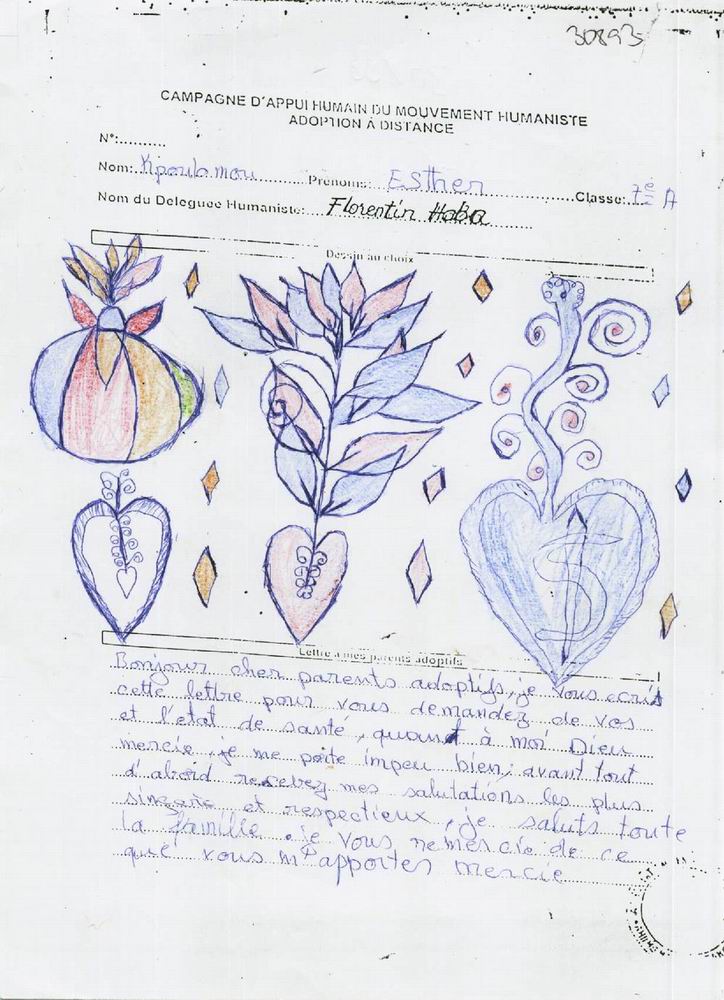 30893
CAMPAGNE D'APPUI HUMAIN DU MOUVEMENT HUMANISTE
ADOPTION À DISTANCE
N°:..........
Nom: Kpoulomou Prénoms: Esther Classe: 7è A
Nom du Deleguee Humaniste: Florentin Haba
Dessin au choix
Lettre à mes parents adoptifs
Bonjour cher parents adoptifs, je vous ecris
cette lettre pour vous demandez de vos
et l'état de santé, quount à moi Dieu
mercie, je me porte impeu bien, avant tout
d'abord recevez mes salutations les plus
sincaire et respectieux, je saluts toute
la famille. je vous remercie de ce
que vous m'apportes mercie